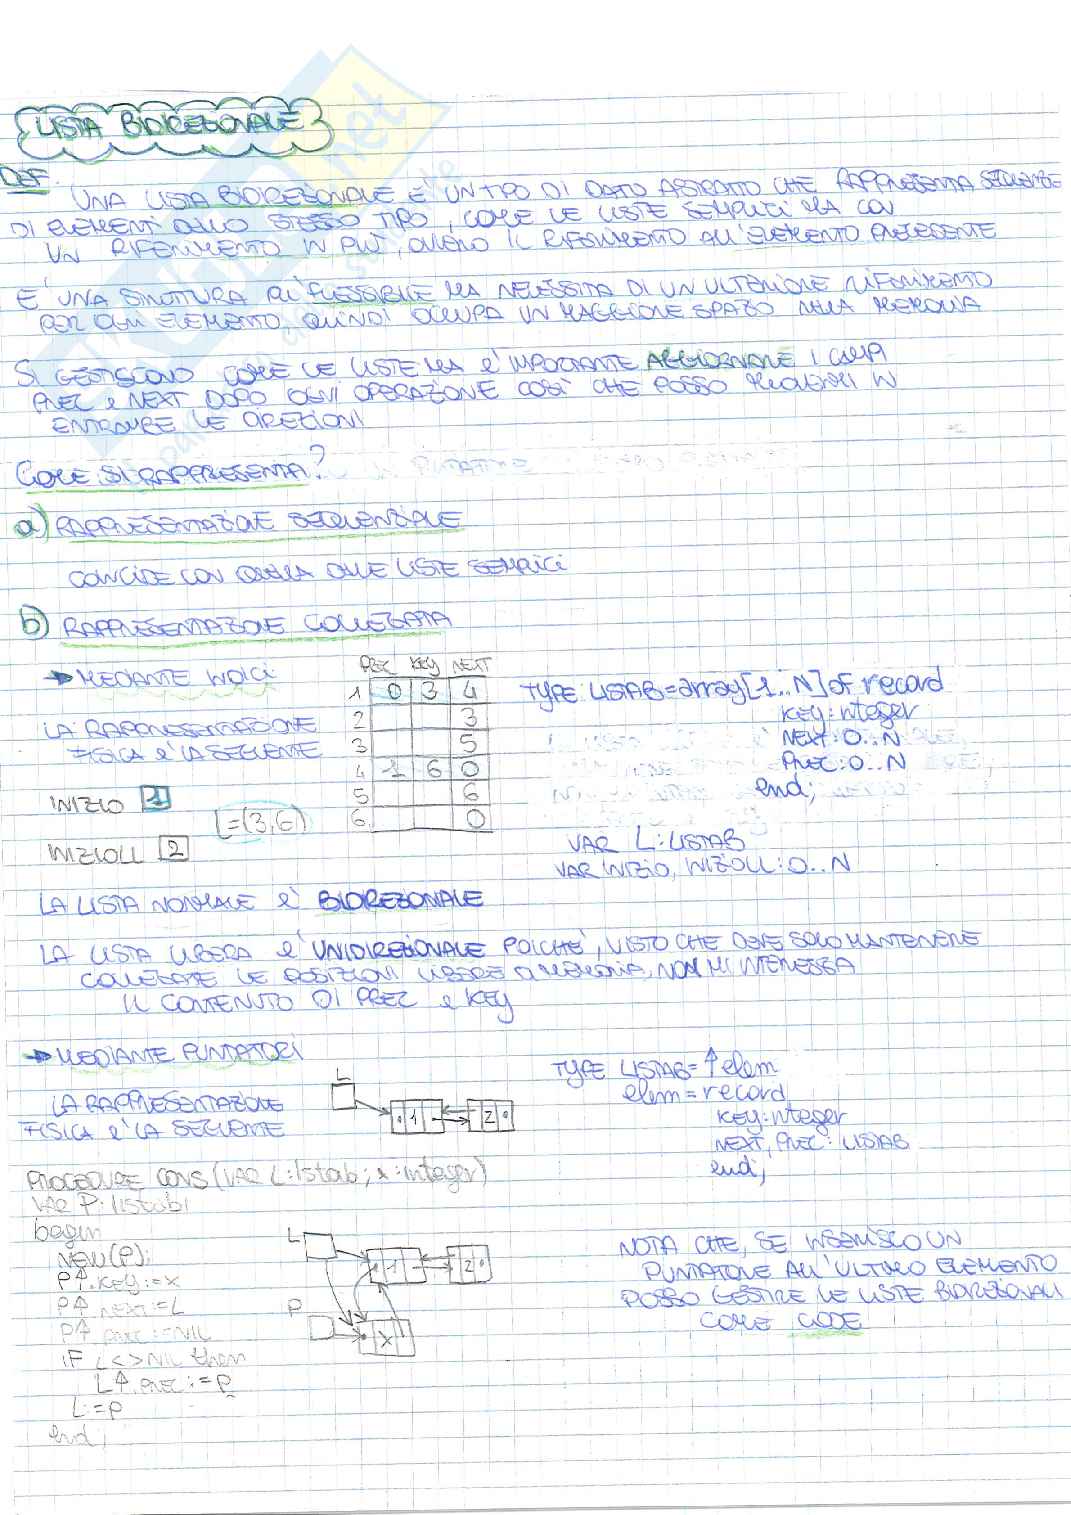 LISTA BIDIREZIONALE
DEF.
UNA LISTA BIDIREZIONALE È UN TIPO DI DATO ASTRATTO CHE RAPPRESENTA SEQUENZE
DI ELEMENTI DELLO STESSO TIPO, COME LE LISTE SEMPLICI MA CON
UN RIFERIMENTO IN PIÙ, OVVERO IL RIFERIMENTO ALL'ELEMENTO PRECEDENTE
E' UNA STRUTTURA PIÙ FLESSIBILE MA NECESSITA DI UN ULTERIORE RIFERIMENTO
PER OGNI ELEMENTO, QUINDI OCCUPA UN MAGGIORE SPAZIO NELLA MEMORIA
SI GESTISCONO COME LE LISTE MA E' IMPORTANTE AGGIORNARE I CAMPI
PREC e NEXT DOPO OGNI OPERAZIONE COSÌ CHE POSSO MUOVERMI IN
ENTRAMBE LE DIREZIONI
COME SI RAPPRESENTA?
a) RAPPRESENTAZIONE SEQUENZIALE
COINCIDE CON QUELLA DELLE LISTE SEMPLICI
b) RAPPRESENTAZIONE COLLEGATA
→ MEDIANTE INDICI
LA RAPPRESENTAZIONE
FISICA e' LA SEGUENTE
INIZIO 1
L=(3,6)
INIZIOLL 2
PREC KEY NEXT
1 0 3 4
2 3
3 5
4 1 6 0
5 6
6 0
TYPE LISTAB=array[1..N] of record
KEY:integer
NEXT:0..N
PREC:0..N
end;
VAR L:LISTAB
VAR INIZIO, INIZIOLL:0..N
LA LISTA NORMALE e' BIDIREZIONALE
LA LISTA LIBERA e' UNIDIREZIONALE POICHE', VISTO CHE DEVE SOLO MANTENERE
COLLEGATE LE POSIZIONI LIBERE DI MEMORIA, NON MI INTERESSA
IL CONTENUTO DI PREC e KEY
→ MEDIANTE PUNTATORI
LA RAPPRESENTAZIONE
FISICA e' LA SEGUENTE
L
1 2
TYPE LISTAB=↑elem
elem=record
KEY:integer
NEXT, PREC: LISTAB
end;
PROCEDURE CONS (VAR L:listab; x:integer)
VAR P:listab;
begin
NEW(P);
P↑.KEY:=x
P↑.NEXT:=L
P↑.PREC:=NIL
IF L<>NIL then
L↑.PREC:=P
L:=P
end;
L
1 2
P
X
NOTA CHE, SE INSERISCO UN
PUNTATORE ALL'ULTIMO ELEMENTO
POSSO GESTIRE LE LISTE BIDIREZIONALI
COME CODE